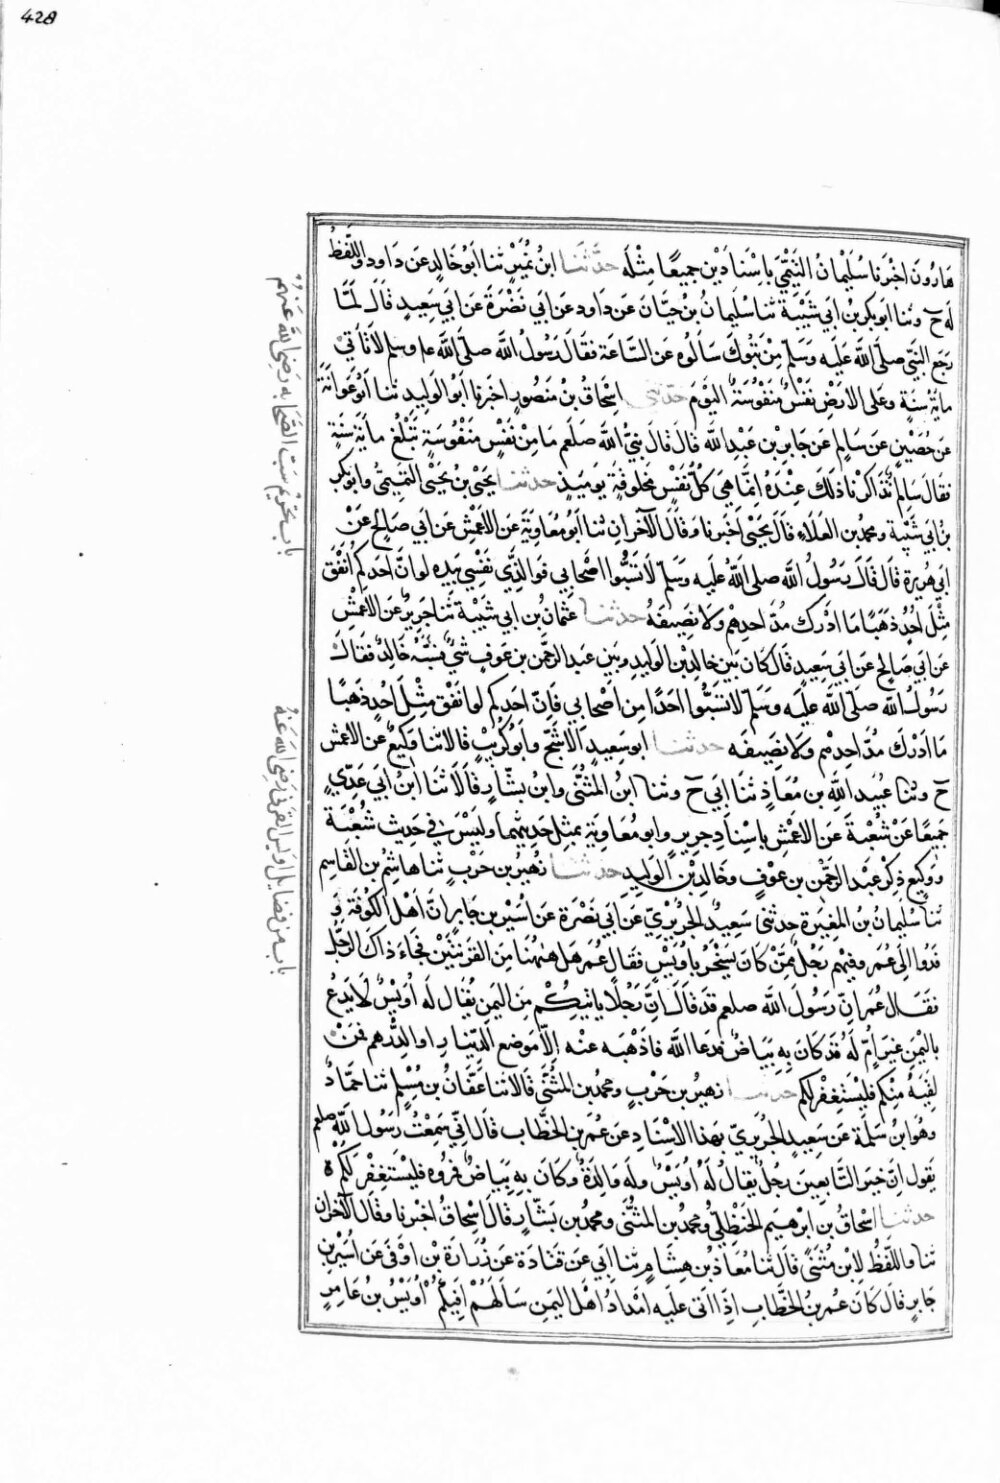 428
هَارُونَ اخْبَرَنَا سُلَيْمَانُ التَّيْمِيُّ بِاسْنَادَيْنِ جَمِيعًا مِثْلَه حَدَّثَنَا ابْنُ نُمَيْرٍ ثنا ابُو خَالِدٍ عَن دَاود وَاللَّفظُ
لَه ح وثنا ابو بكر بن ابي شَيْبَةَ ثنا سُلَيمانُ بنُ حَيَّانَ عَن داود عَن ابي نَضْرَةَ عَن ابي سَعِيدٍ قَالَ لمَّا
رَجَعَ النَّبِيّ صلّى الله عَلَيه وَسَلّم مِنْ تَبُوكَ سَالُوه عَنِ السَّاعَة فقَالَ رَسُولُ الله صَلّى الله عليه وسلم لا تَاتي
مايةُ سَنَةٍ وعَلى الارضِ نَفْسٌ مَنْفُوسَةٌ اليَوْمَ حدثني اسْحَاقُ بن مَنصُورٍ اخبَرنا ابُو الوَلِيدِ ثنا ابُو عَوانَةَ
عَن حُصَيْنٍ عَن سَالِمٍ عَن جَابِرِ بن عَبدِ الله قَالَ قَالَ نبيُّ الله صَلعم مَا مِنْ نَفْسٍ مَنْفُوسَةٍ تَبْلُغ مايةَ سَنَةٍ
فقَالَ سَالِم تَذَاكَرْنا ذلكَ عِنْدَهُ اِنَّمَا هيَ كلُّ نَفْسٍ مَخلوقةٍ يَومَيذٍ حدثنا يَحْيَى بنُ يَحْيَى التَّمِيميُّ وابو بكر
بنُ ابي شَيْبَة ومحمد بن العَلاءِ قالَ يَحْيَى اخبَرنا وقَالَ الآخَرانِ ثنا ابُو مُعَاوِيَةَ عَنِ الاعْمَشِ عَن ابي صَالِحٍ عَنْ
ابي هُرَيرة قَالَ قَالَ رَسُولُ الله صلى الله عَليه وَسَلّم لا تَسُبُّوا اصْحَابي فوَالذِّي نَفْسِي بيَدِه لو انَّ احَدَكم انْفَق
مِثْلَ احُدٍ ذهَبًا مَا ادْرَك مُدَّ احدِهِمْ ولا نَصِيفَهُ حدثنا عثمَانُ بن ابي شَيْبَةَ ثَنا جَرِيرٌ عَن الاعْمَشِ
عَن ابي صَالِحٍ عَن ابي سَعِيدٍ قَال كان بَيْنَ خالِدِ بن الوَلِيدِ وبَيْن عَبد الرَّحْمنِ بنِ عَوفٍ شيٌ فسَبَّهُ خَالِدٌ فقالَ
رَسُولُ الله صَلّى الله عَليه وَسَلّم لا تَسُبُّوا احَدًا مِن اصْحَابي فَانَّ احَدَكم لو انْفَقَ مِثْلَ احُدٍ ذَهَبًا
مَا ادْرَكَ مُدَّ احِدِهِم ولا نَصِيفَه حدثنا ابو سَعِيدٍ الاشَجُّ وابو كُرَيْبٍ قَالا ثنا وَكِيعٌ عَن الاعمش
ح وثنا عُبَيد اللهِ بن مُعَاذٍ ثَنَا ابي ح وثنا ابنُ المثنَّى وابن بشَّارٍ قَالَا ثَنَا ابنُ ابي عَدِيٍّ
جَميعًا عَنْ شُعْبَةَ عَن الاعْمَشِ باسْنادِ جريرٍ وابو معَاويَة بمِثلِ حَديثهِمَا ولَيْسَ في حَديثِ شُعْبَةَ
ووَكِيعٍ ذِكْر عَبدِ الرَّحمن بن عَوْفٍ وخَالِدِ بن الوَلِيدِ حدثنا زهَيْرُ بن حَرْبٍ ثنا هَاشِمُ بن القَاسِم
ثنا سُلَيمانُ بن المغِيرَة حدثني سَعِيدٌ الجُرَيْرِيّ عَن ابي نَضْرَةَ عَن اُسَيْرِ بن جَابِرٍ انَّ اهْلَ الكُوفَةِ وَ
فَدُوا الى عُمَر وفيهِم رَجُلٌ مِمَّنْ كانَ يَسْخَرُ بِاوَيْسٍ فقال عُمَر هَل هٰهُنَا مِنَ القَرَنِيِّينَ فجَاءَ ذاكَ الرَّجلُ
فقَالَ عُمَر اِنّ رَسُولَ الله صلعم قد قَالَ انَّ رَجُلًا ياتيكُمْ مِنَ اليَمنِ يُقَالُ لَه اُوَيْسٌ لا يَدعُ
باليَمنِ غيرَ اُمٍّ لَه قد كانَ بِهِ بيَاضٌ فدعَا اللهَ فاذْهَبَه عنه اِلَّا مَوضع الدِّينارِ او الدِّرهم فمَنْ
لقِيَهُ مِنْكم فلْيَسْتَغْفِرْ لكُم حدثنا زهيرُ بن حَربٍ ومحمد بن المثنَّى قَالا ثنا عَفَّانُ بن مُسْلِمٍ ثنا حمَّادٌ
وهُوَ ابنُ سَلَمَة عَن سَعِيدٍ الجُرَيْرِيّ بهَذا الاِسْنَادِ عَن عُمَرَ بن الخطَّاب قَالَ انّي سَمِعْتُ رَسُول الله صلعم
يَقول اِنَّ خيرَ التَّابعينَ رَجُلٌ يقالُ لَهُ اُوَيْسٌ وله وَالِدَةٌ وكَانَ بِهِ بيَاضٌ فمُرُوه فليَسْتَغفِرْ لَكُمْ ه
حدثنا اسْحَاقُ بن ابرهيم الحَنْظَليّ ومحمد بن المثنَّى ومحمد بن بَشَّارٍ قَالَ اسْحَاقُ اخبَرنا وقَال الآخَران
ثنا واللّفظُ لاِبن مُثَنَّى قَالَ ثنا مُعَاذ بن هِشَامٍ ثنا ابي عن قتادَة عَن زُرَارَة بن اوْفى عَن اُسَيْرِ بن
جَابِرٍ قالَ كَانَ عُمر بنُ الخطَّابِ اِذَا اتى عَليه امْدَادُ اهْلِ اليَمنِ سَالَهُمْ اَفِيكُمْ اُوَيْسُ بنُ عَامِرٍ
باب تحريم سب الصَّحَابه رَضِيَ الله عَنهم
باب من فضايل اويس القرني رَضِيَ الله عَنْهُ